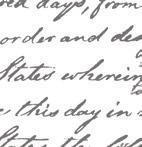 days, from
order and
States wherein
this day in
States the